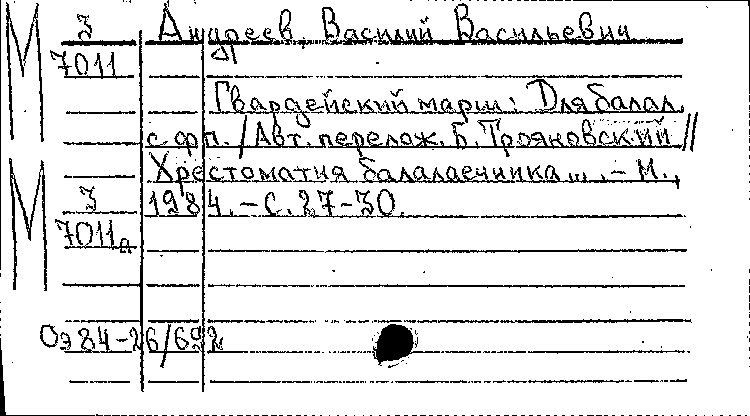 М З Андреев, Василий Васильевич
7011
Гвардейский марш: Для балал.
с фп. / Авт. перелож. Б. Трояновский //
Хрестоматия балалаечника... . – М.,
М З 1984. – С. 27-30.
7011а
Оэ 84-26/692